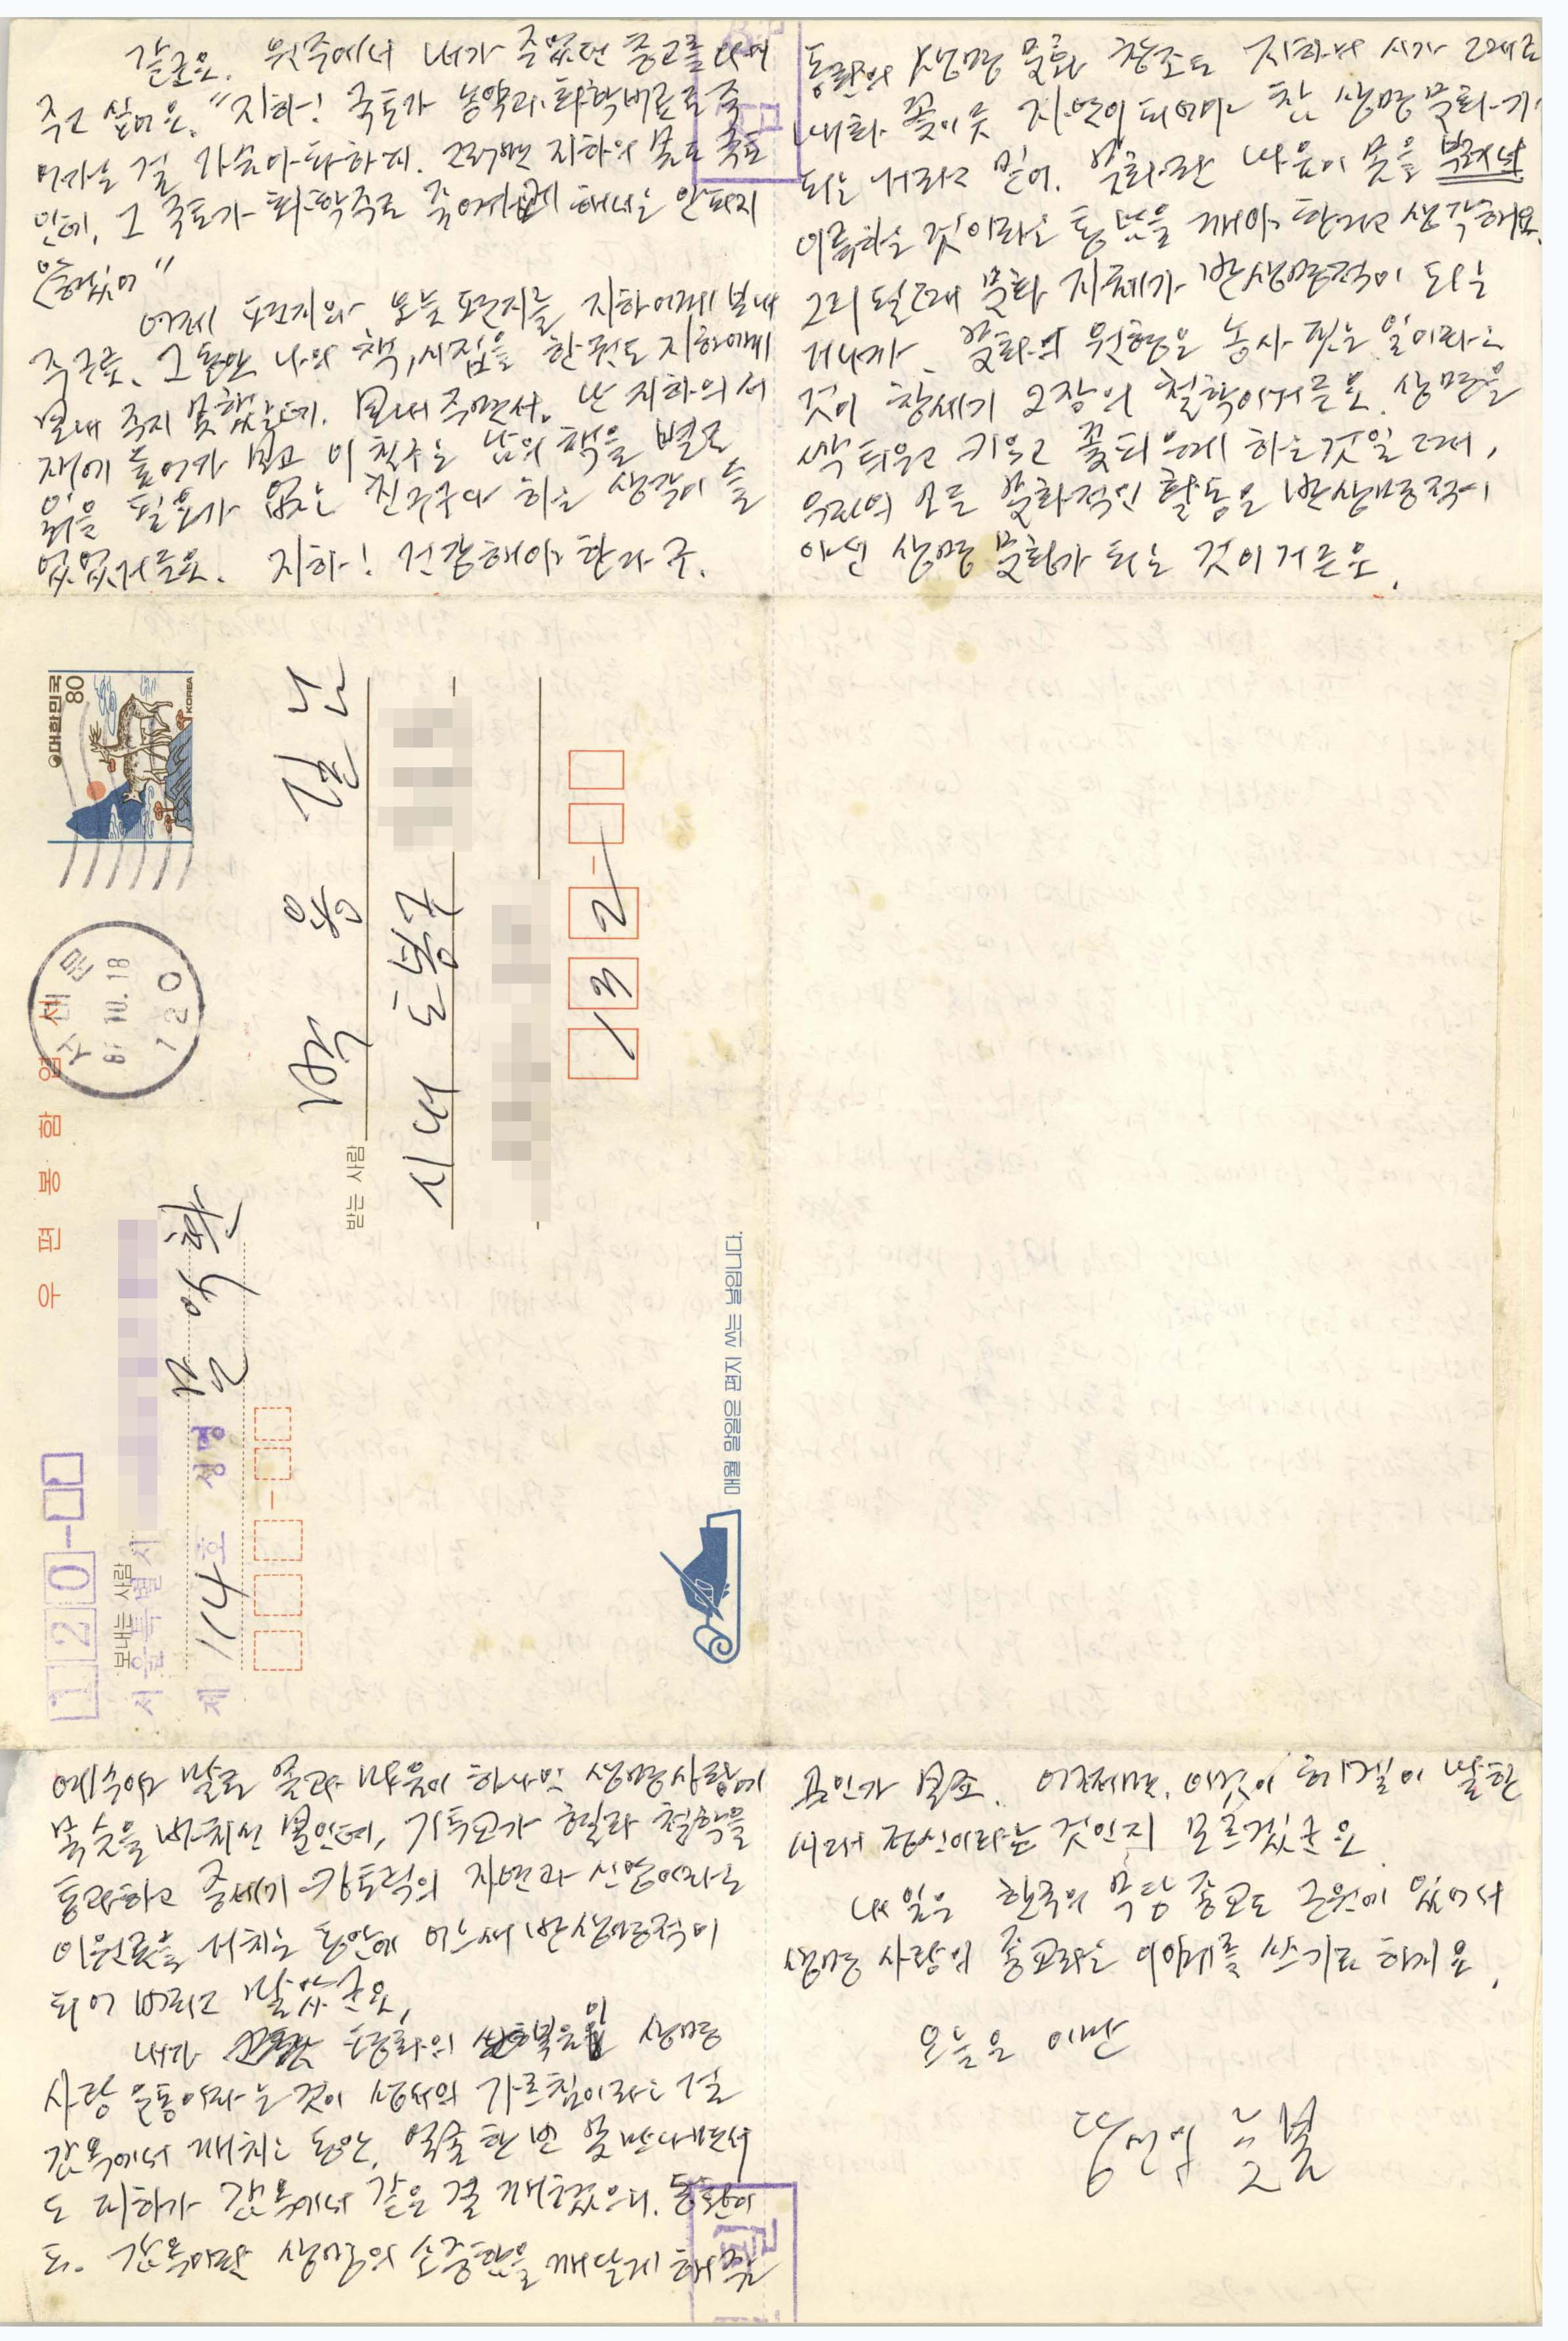 같군요. 원주에서 내가 주었던 충고를 다시
주고 싶어요. "지하! 국토가 농약과 화학비료로 죽
어가는 걸 가슴아파하지. 그러면 지하의 몸도 국토
인데, 그 국토가 화학주로 죽어가게 해서는 안되지
않겠어"
어제 편지와 오늘 편지를 지하에게 보내
주구료. 그 동안 나의 책, 시집을 한권도 지하에게
보내 주지 못했을텐데. 보내 주면서. 난 지하의 서
재에 들어가 보고 이 친구는 남의 책을 별로
읽을 필요가 없는 친구구나 하는 생각이 들
었었거든요. 지하! 건강해야 한다구.
동환의 생명 문화 창조도 지하의 시가 그대로
내화 꽃이 듯 자연이 되어야 참 생명 문화가
되는 거라고 믿어. 문화란 마음이 몸을 부려서
이룩하는 것이라는 통념을 깨야 한다고 생각해요.
그리 될 때 문화 자체가 반생명적이 되는
거니까. 문화의 원형은 농사 짓는 일이라는
것이 창세기 2장의 철학이거든요. 생명을
싹 틔우고 키우고 꽃피우게 하는 것일 때,
우리의 모든 문화적인 활동은 반생명적이
아닌 생명 문화가 되는 것이거든요.
대한민국 80 KOREA
서대문
87.10.18
120
우편봉함엽서
보내는 사람
120-
서울특별시
제 114 호 성명 문익환
받는 사람
박용길 난
시내 도봉구
132-
매월 말일은 편지 쓰는 날입니다.
예수야 말로 몸과 마음이 하나인 생명사랑에
목숨을 바치신 분인데, 기독교가 헬라 철학을
통과하고 중세기 카토릭의 자연과 신앙이라는
이원론을 거치는 동안에 어느새 반생명적이
되어 버리고 말았군요.
내가 생명
사랑 운동이라는 것이 성서의 가르침이라는 걸
감옥에서 깨치는 동안, 얼굴 한 번 못 만나면서
도 지하가 감옥에서 같은 걸 깨쳤으니. 동환이
도. 감옥이란 생명의 소중함을 깨닫게 해 주는
곳인가 보죠. 어쩌면, 이것이 헤겔이 말한
시대 정신이라는 것인지 모르겠군요
내일은 한국의 무당 종교도 근원에 있어서
생명 사랑의 종교라는 이야기를 쓰기로 하지요.
오늘은 이만
당신의 늦봄